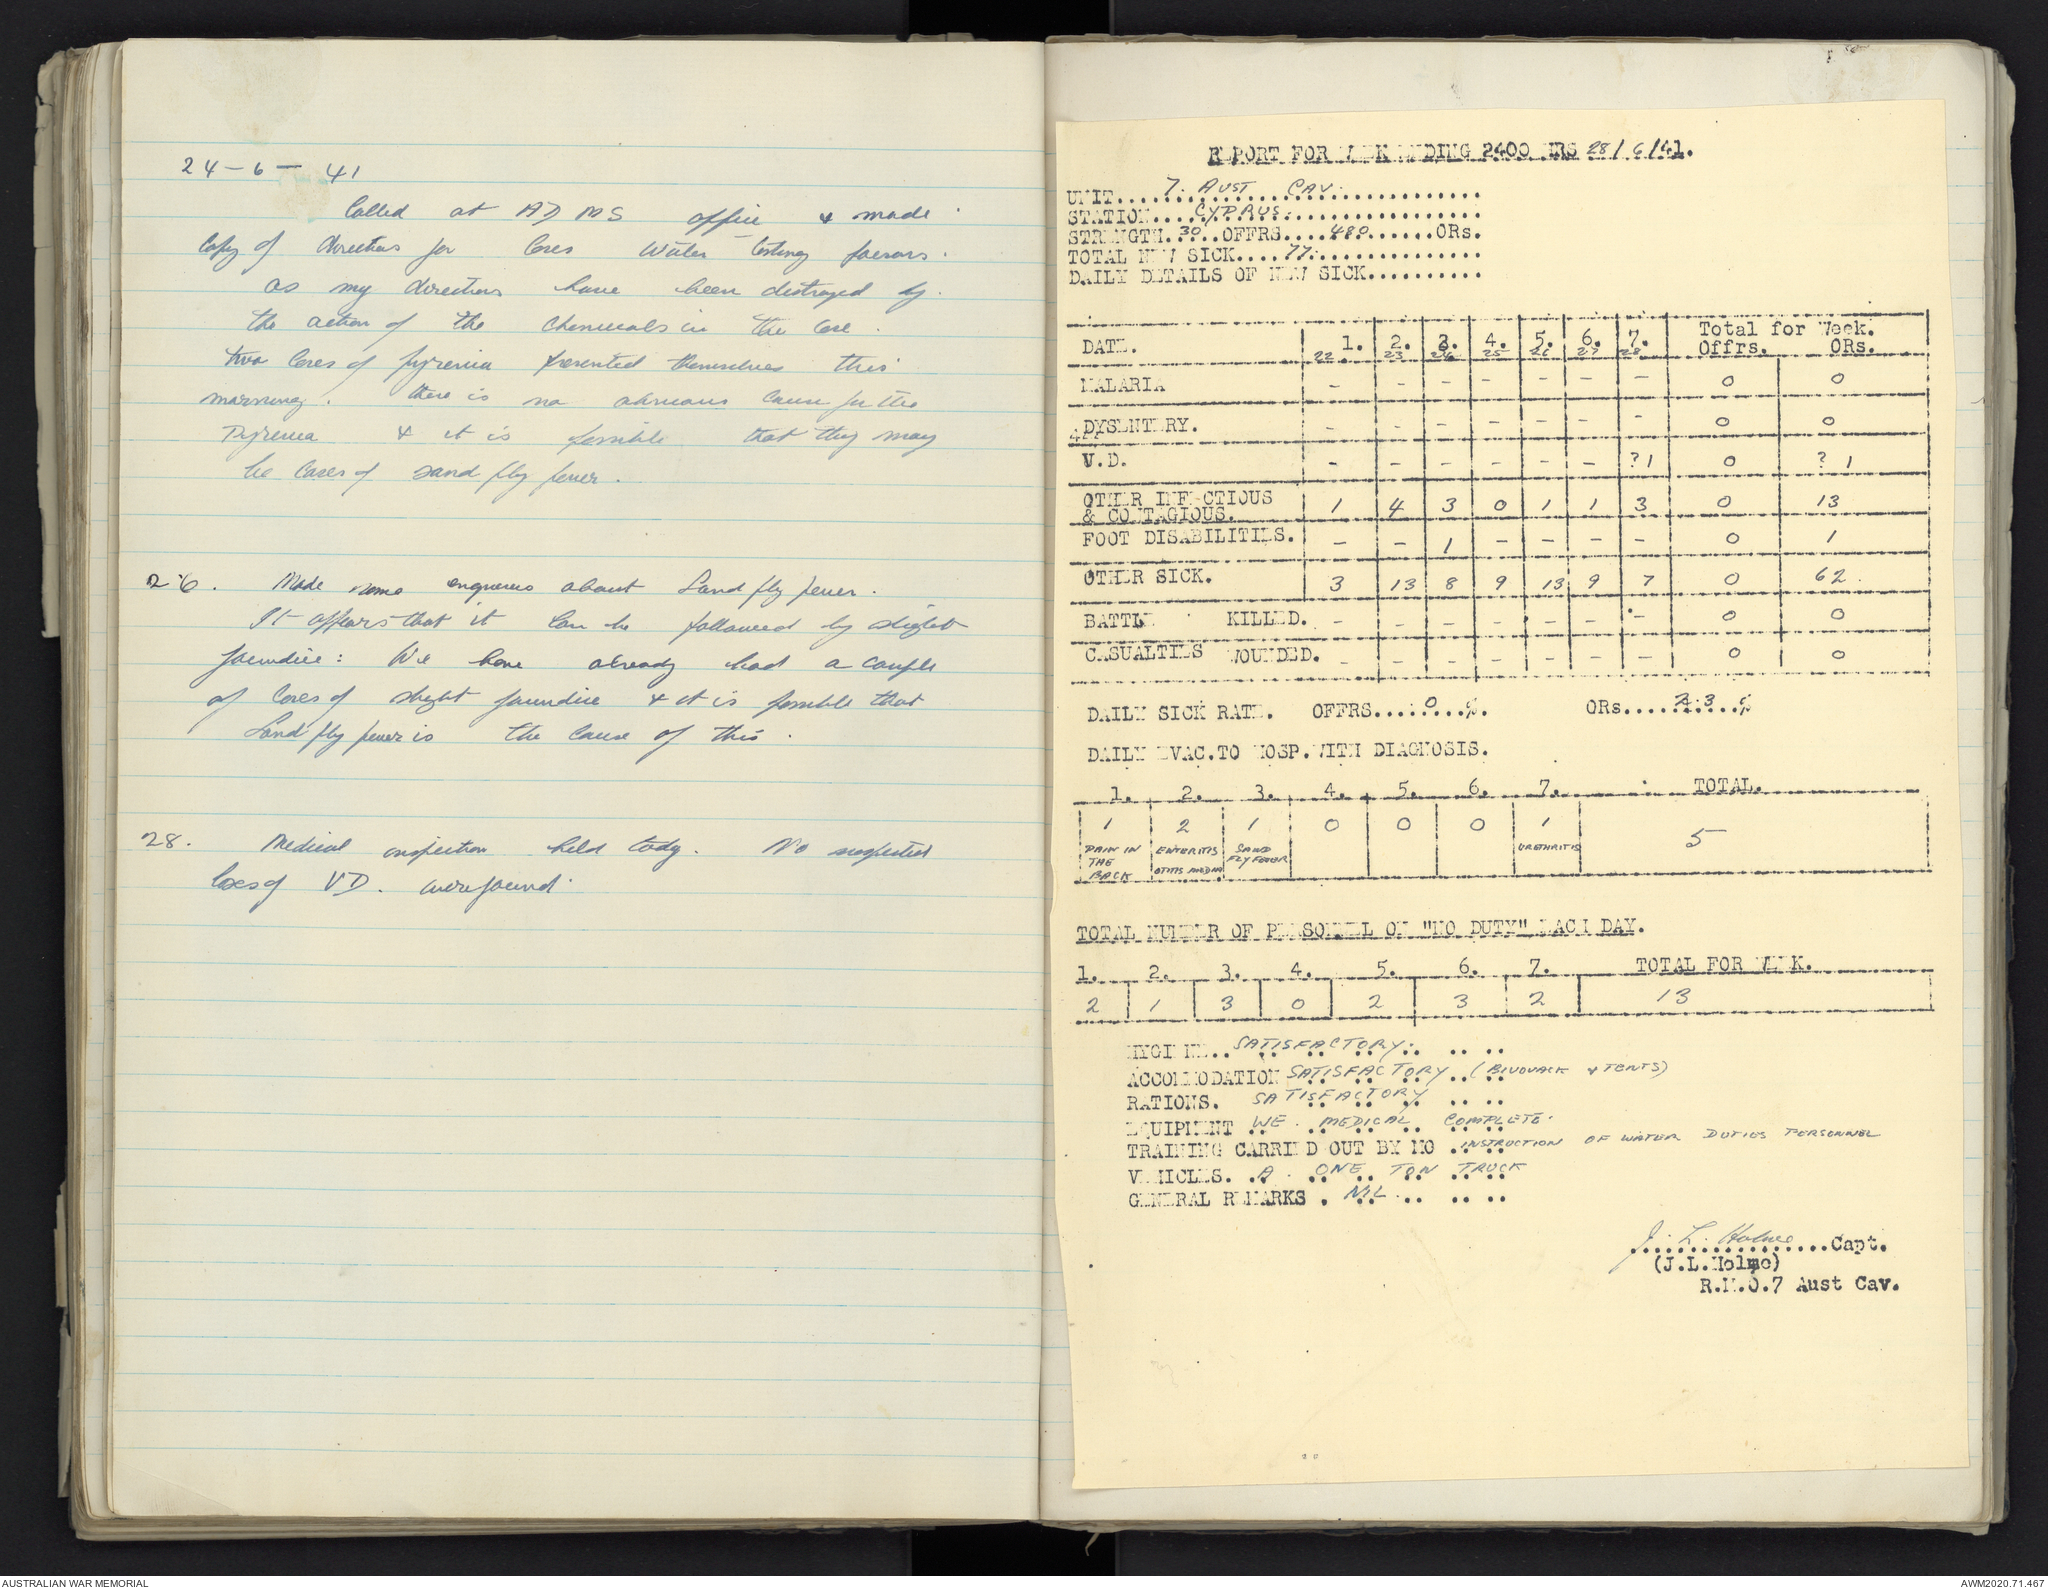 24-6-41
Called at ADMS office & made
copy of directions for Cases Water testing poisons.
as my directions have been destroyed by
the action of the chemicals in the case.
two cases of pyrexia presented themselves this
morning. there is no obvious cause for the
Pyrexia & it is possible that they may
be cases of sand fly fever.
26. Made some enquiries about Sand fly fever.
It appears that it can be followed by slight
jaundice: We have already had a couple
of cases of slight jaundice & it is possible that
Sand fly fever is the cause of this.
28. Medical inspection held today. No suspected
cases of VD. were found.
REPORT FOR WEEK ENDING 2400 HRS 28/6/41.
UNIT....7. AUST CAV...............
STATION....CYPRUS..................
STRENGTH.30..OFFRS....480......ORs.
TOTAL NEW SICK....77...............
DAILY DETAILS OF NEW SICK..........
DATE. 1. 2. 3. 4. 5. 6. 7. Total for Week.
22 23 24 25 26 27 28 Offrs. ORs.
MALARIA - - - - - - - 0 0
DYSENTERY. - - - - - - - 0 0
V.D. - - - - - - ?1 0 ?1
OTHER INFECTIOUS
& CONTAGIOUS. 1 4 3 0 1 1 3 0 13
FOOT DISABILITIES. - - 1 - - - - 0 1
OTHER SICK. 3 13 8 9 13 9 7 0 62.
BATTLE KILLED. - - - - - - - 0 0
CASUALTIES WOUNDED. - - - - - - - 0 0
DAILY SICK RATE. OFFRS.....0..%. ORs....2.3..%
DAILY EVAC.TO HOSP.WITH DIAGNOSIS.
1. 2. 3. 4. 5. 6. 7. TOTAL.
1 2 1 0 0 0 1 5
PAIN IN ENTERITIS SAND URETHRITIS
THE FLY FEVER
BACK OTITIS MEDIA
TOTAL NUMBER OF PERSONNEL ON "NO DUTY" EACH DAY.
1. 2. 3. 4. 5. 6. 7. TOTAL FOR WEEK.
2 1 3 0 2 3 2 13
HYGIENE.. SATISFACTORY. .. ..
ACCOMMODATION SATISFACTORY .. (BIVOUACK & TENTS)
RATIONS. SATISFACTORY .. ..
EQUIPMENT WE. MEDICAL COMPLETE.
TRAINING CARRIED OUT BY MO . INSTRUCTION OF WATER DUTIES PERSONNEL
VEHICLES. A. ONE TON TRUCK
GENERAL REMARKS . NIL .. .. ..
J. L. Holme.....Capt.
(J.L.Holme)
R.M.O.7 Aust Cav.
AUSTRALIAN WAR MEMORIAL
AWM2020.71.467